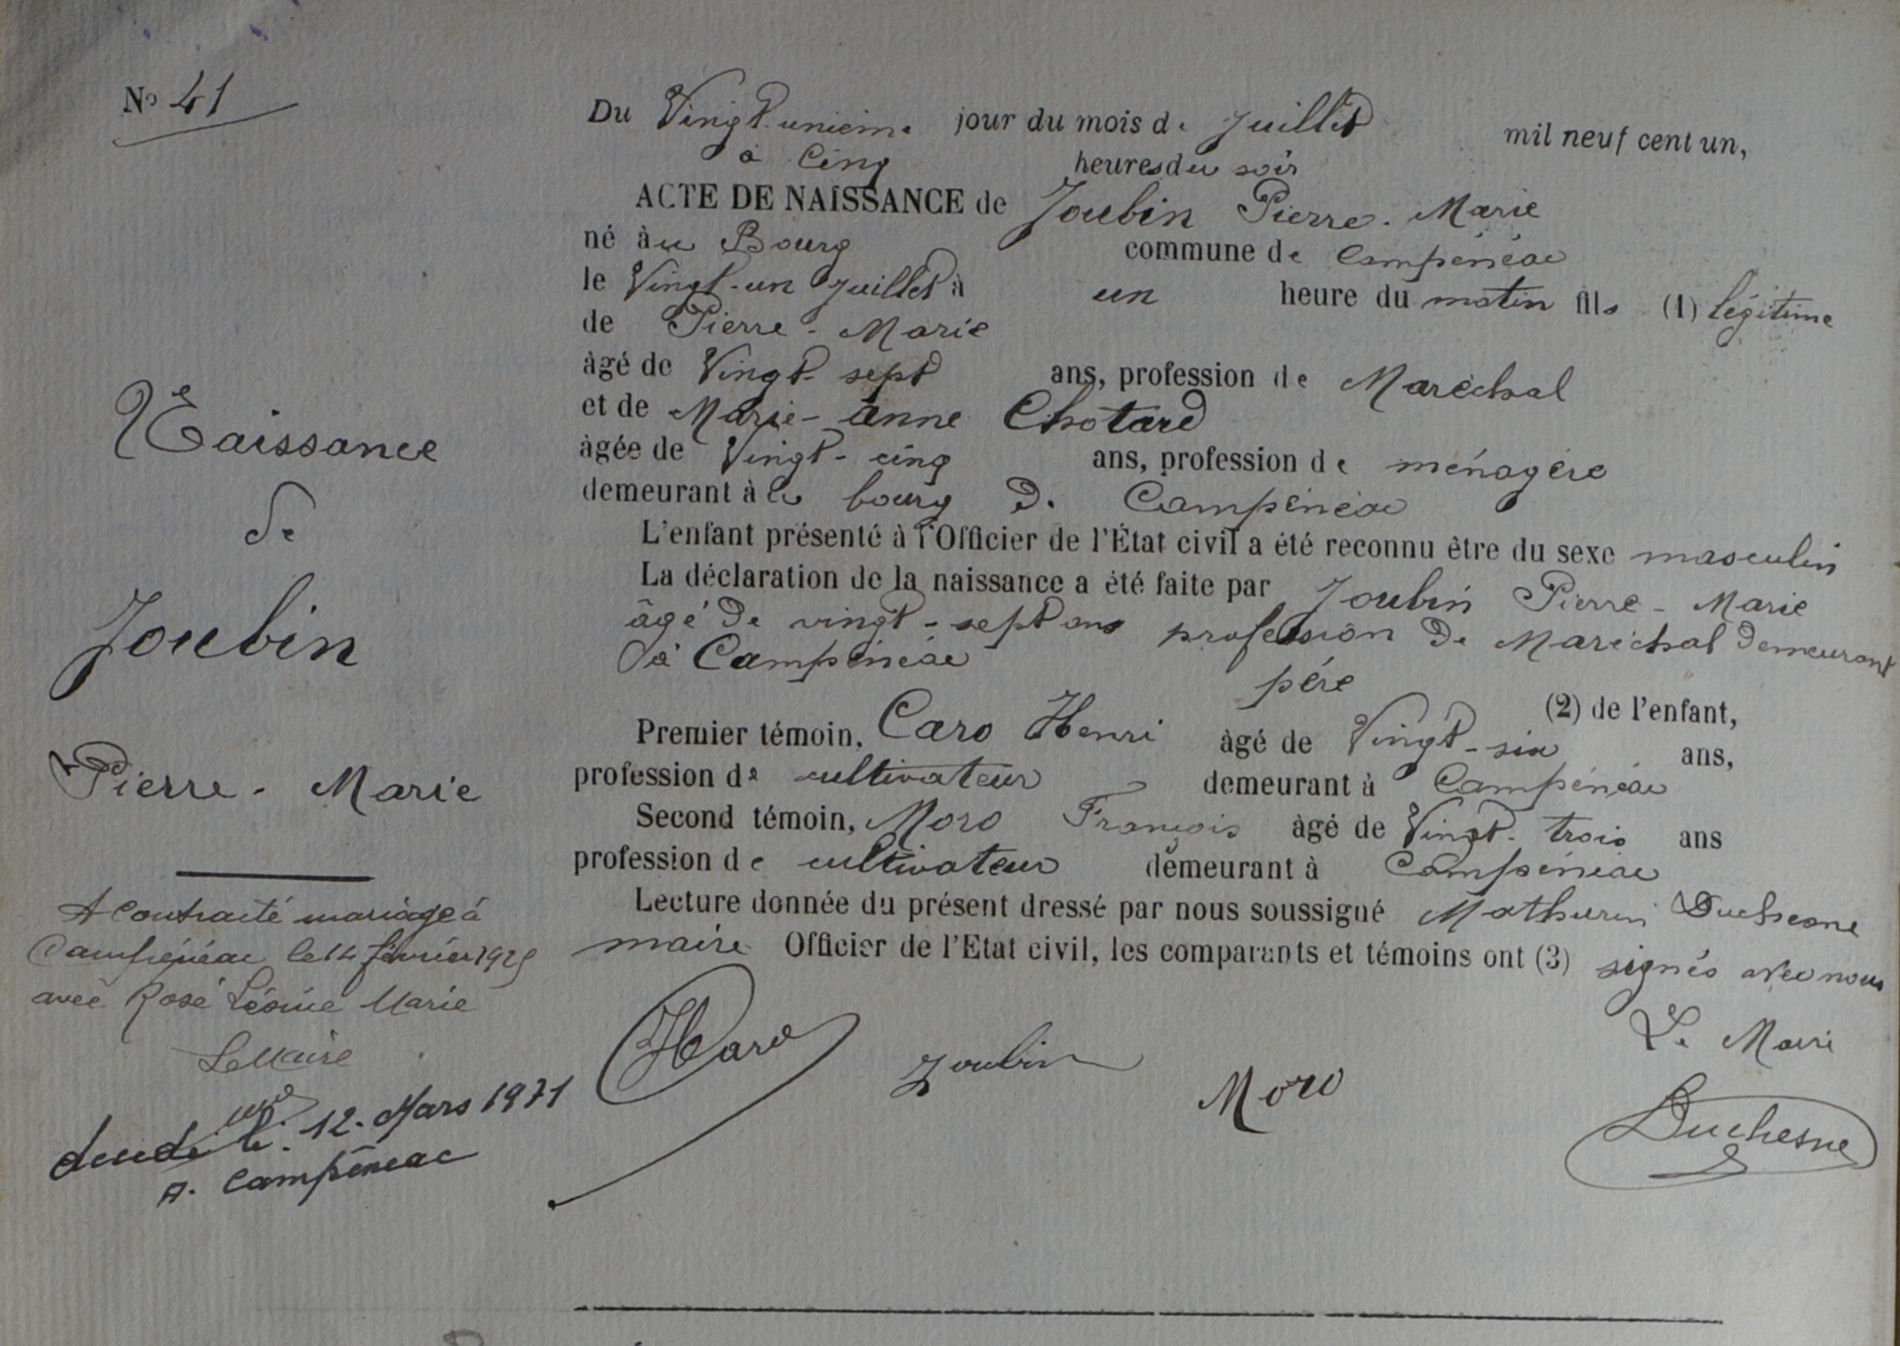 No 41
Naissance
de
Joubin
Pierre-Marie
A contracté mariage à
Campénéac le 14 février 1925
avec Rose Léonie Marie
Lemaire
décédé le 12 Mars 1971
A. Campénéac
Du Vingt-unième jour du mois de Juillet mil neuf cent un,
à Cinq heures du soir
ACTE DE NAISSANCE de Joubin Pierre-Marie
né àu Bourg commune de Campénéac
le Vingt-un Juillet à un heure du matin fils (1) légitime
de Pierre-Marie
âgé de Vingt-sept ans, profession de Maréchal
et de Marie-Anne Chotard
âgée de Vingt-cinq ans, profession de ménagère
demeurant à bourg de Campénéac
L'enfant présenté à l'Officier de l'État civil a été reconnu être du sexe masculin
La déclaration de la naissance a été faite par Joubin Pierre-Marie
âgé de vingt-sept ans profession de Maréchal demeurant
à Campénéac père (2) de l'enfant,
Premier témoin, Caro Henri âgé de Vingt-six ans,
profession de cultivateur demeurant à Campénéac
Second témoin, Moro François âgé de Vingt-trois ans
profession de cultivateur demeurant à Campénéac
Lecture donnée du présent dressé par nous soussigné Mathurin Duchesne
maire Officier de l'Etat civil, les comparants et témoins ont (3) signés avec nous
Le Maire
HCaro Joubin Moro Duchesne